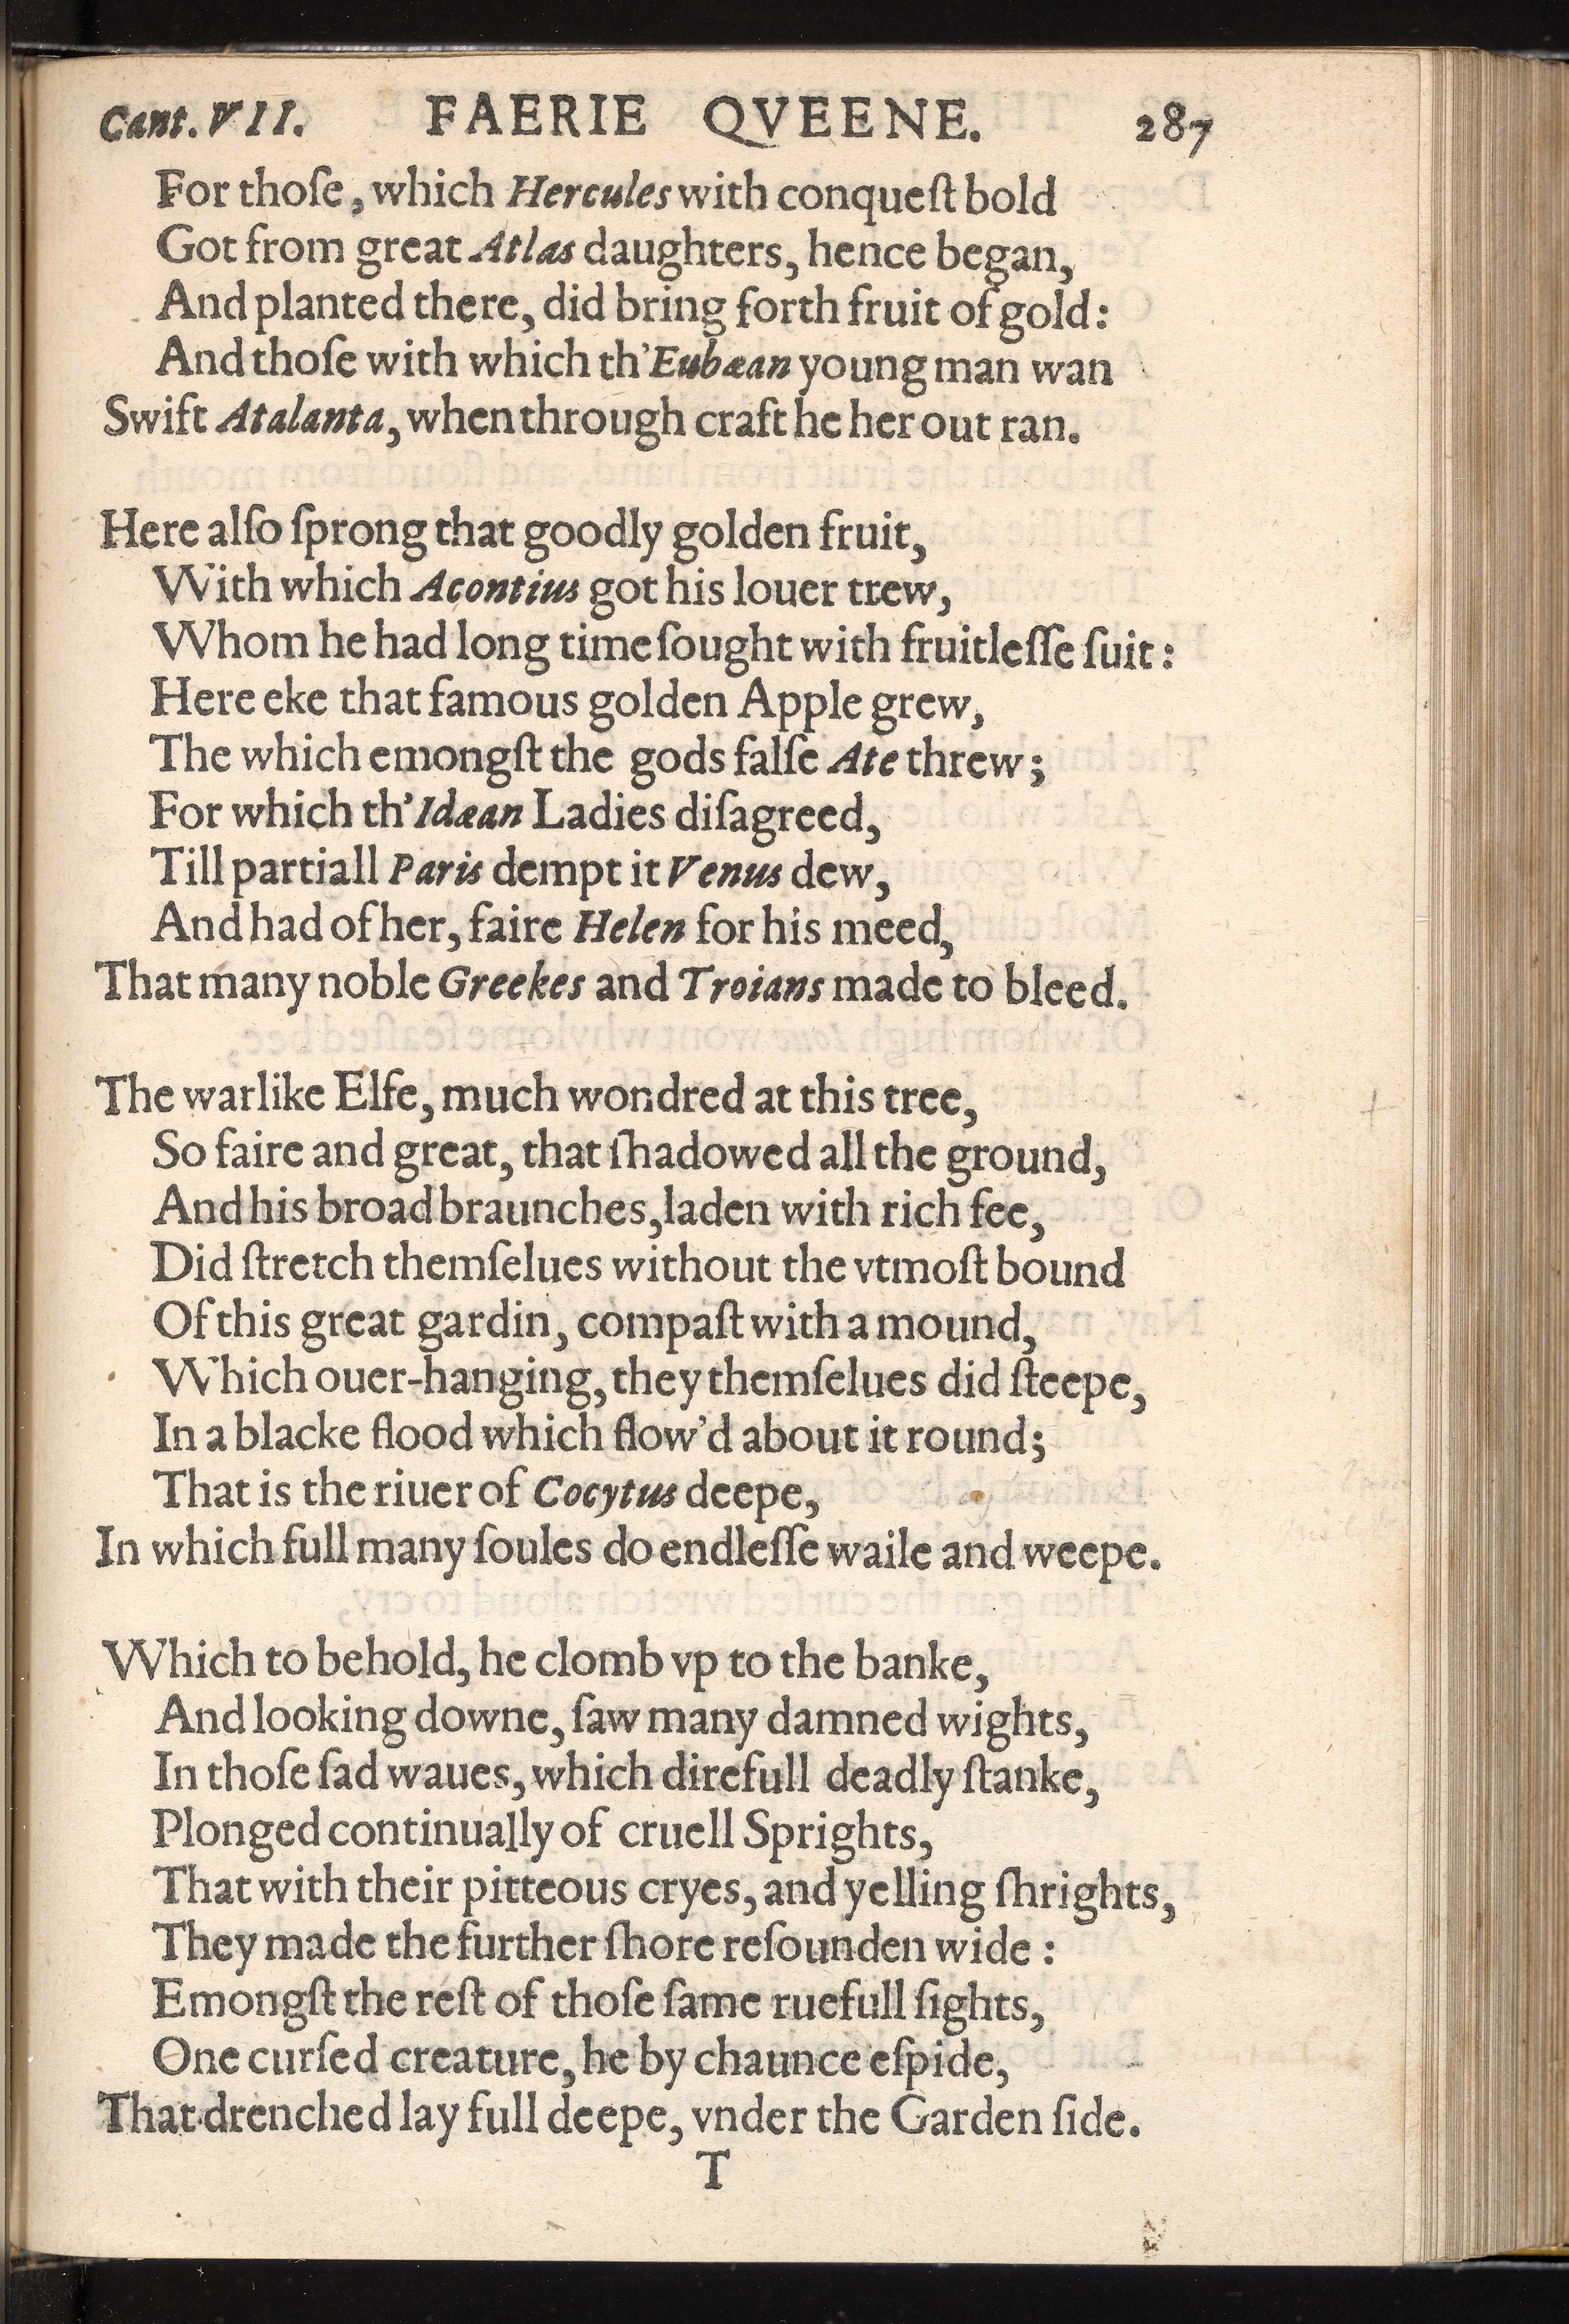 Cant. VII. FAERIE QVEENE. 287
For thoſe, which Hercules with conqueſt bold
Got from great Atlas daughters, hence began,
And planted there, did bring forth fruit of gold:
And thoſe with which th'Eubæan young man wan
Swift Atalanta, when through craft he her out ran.
Here alſo ſprong that goodly golden fruit,
With which Acontius got his louer trew,
Whom he had long time ſought with fruitleſſe ſuit:
Here eke that famous golden Apple grew,
The which emongſt the gods falſe Ate threw;
For which th'Idæan Ladies diſagreed,
Till partiall Paris dempt it Venus dew,
And had of her, faire Helen for his meed,
That many noble Greekes and Troians made to bleed.
The warlike Elfe, much wondred at this tree,
So faire and great, that ſhadowed all the ground,
And his broad braunches, laden with rich fee,
Did ſtretch themſelues without the vtmoſt bound
Of this great gardin, compaſt with a mound,
Which ouer-hanging, they themſelues did ſteepe,
In a blacke flood which flow'd about it round;
That is the riuer of Cocytus deepe,
In which full many ſoules do endleſſe waile and weepe.
Which to behold, he clomb vp to the banke,
And looking downe, ſaw many damned wights,
In thoſe ſad waues, which direfull deadly ſtanke,
Plonged continually of cruell Sprights,
That with their pitteous cryes, and yelling ſhrights,
They made the further ſhore reſounden wide:
Emongſt the reſt of thoſe ſame ruefull ſights,
One curſed creature, he by chaunce eſpide,
That drenched lay full deepe, vnder the Garden ſide.
T